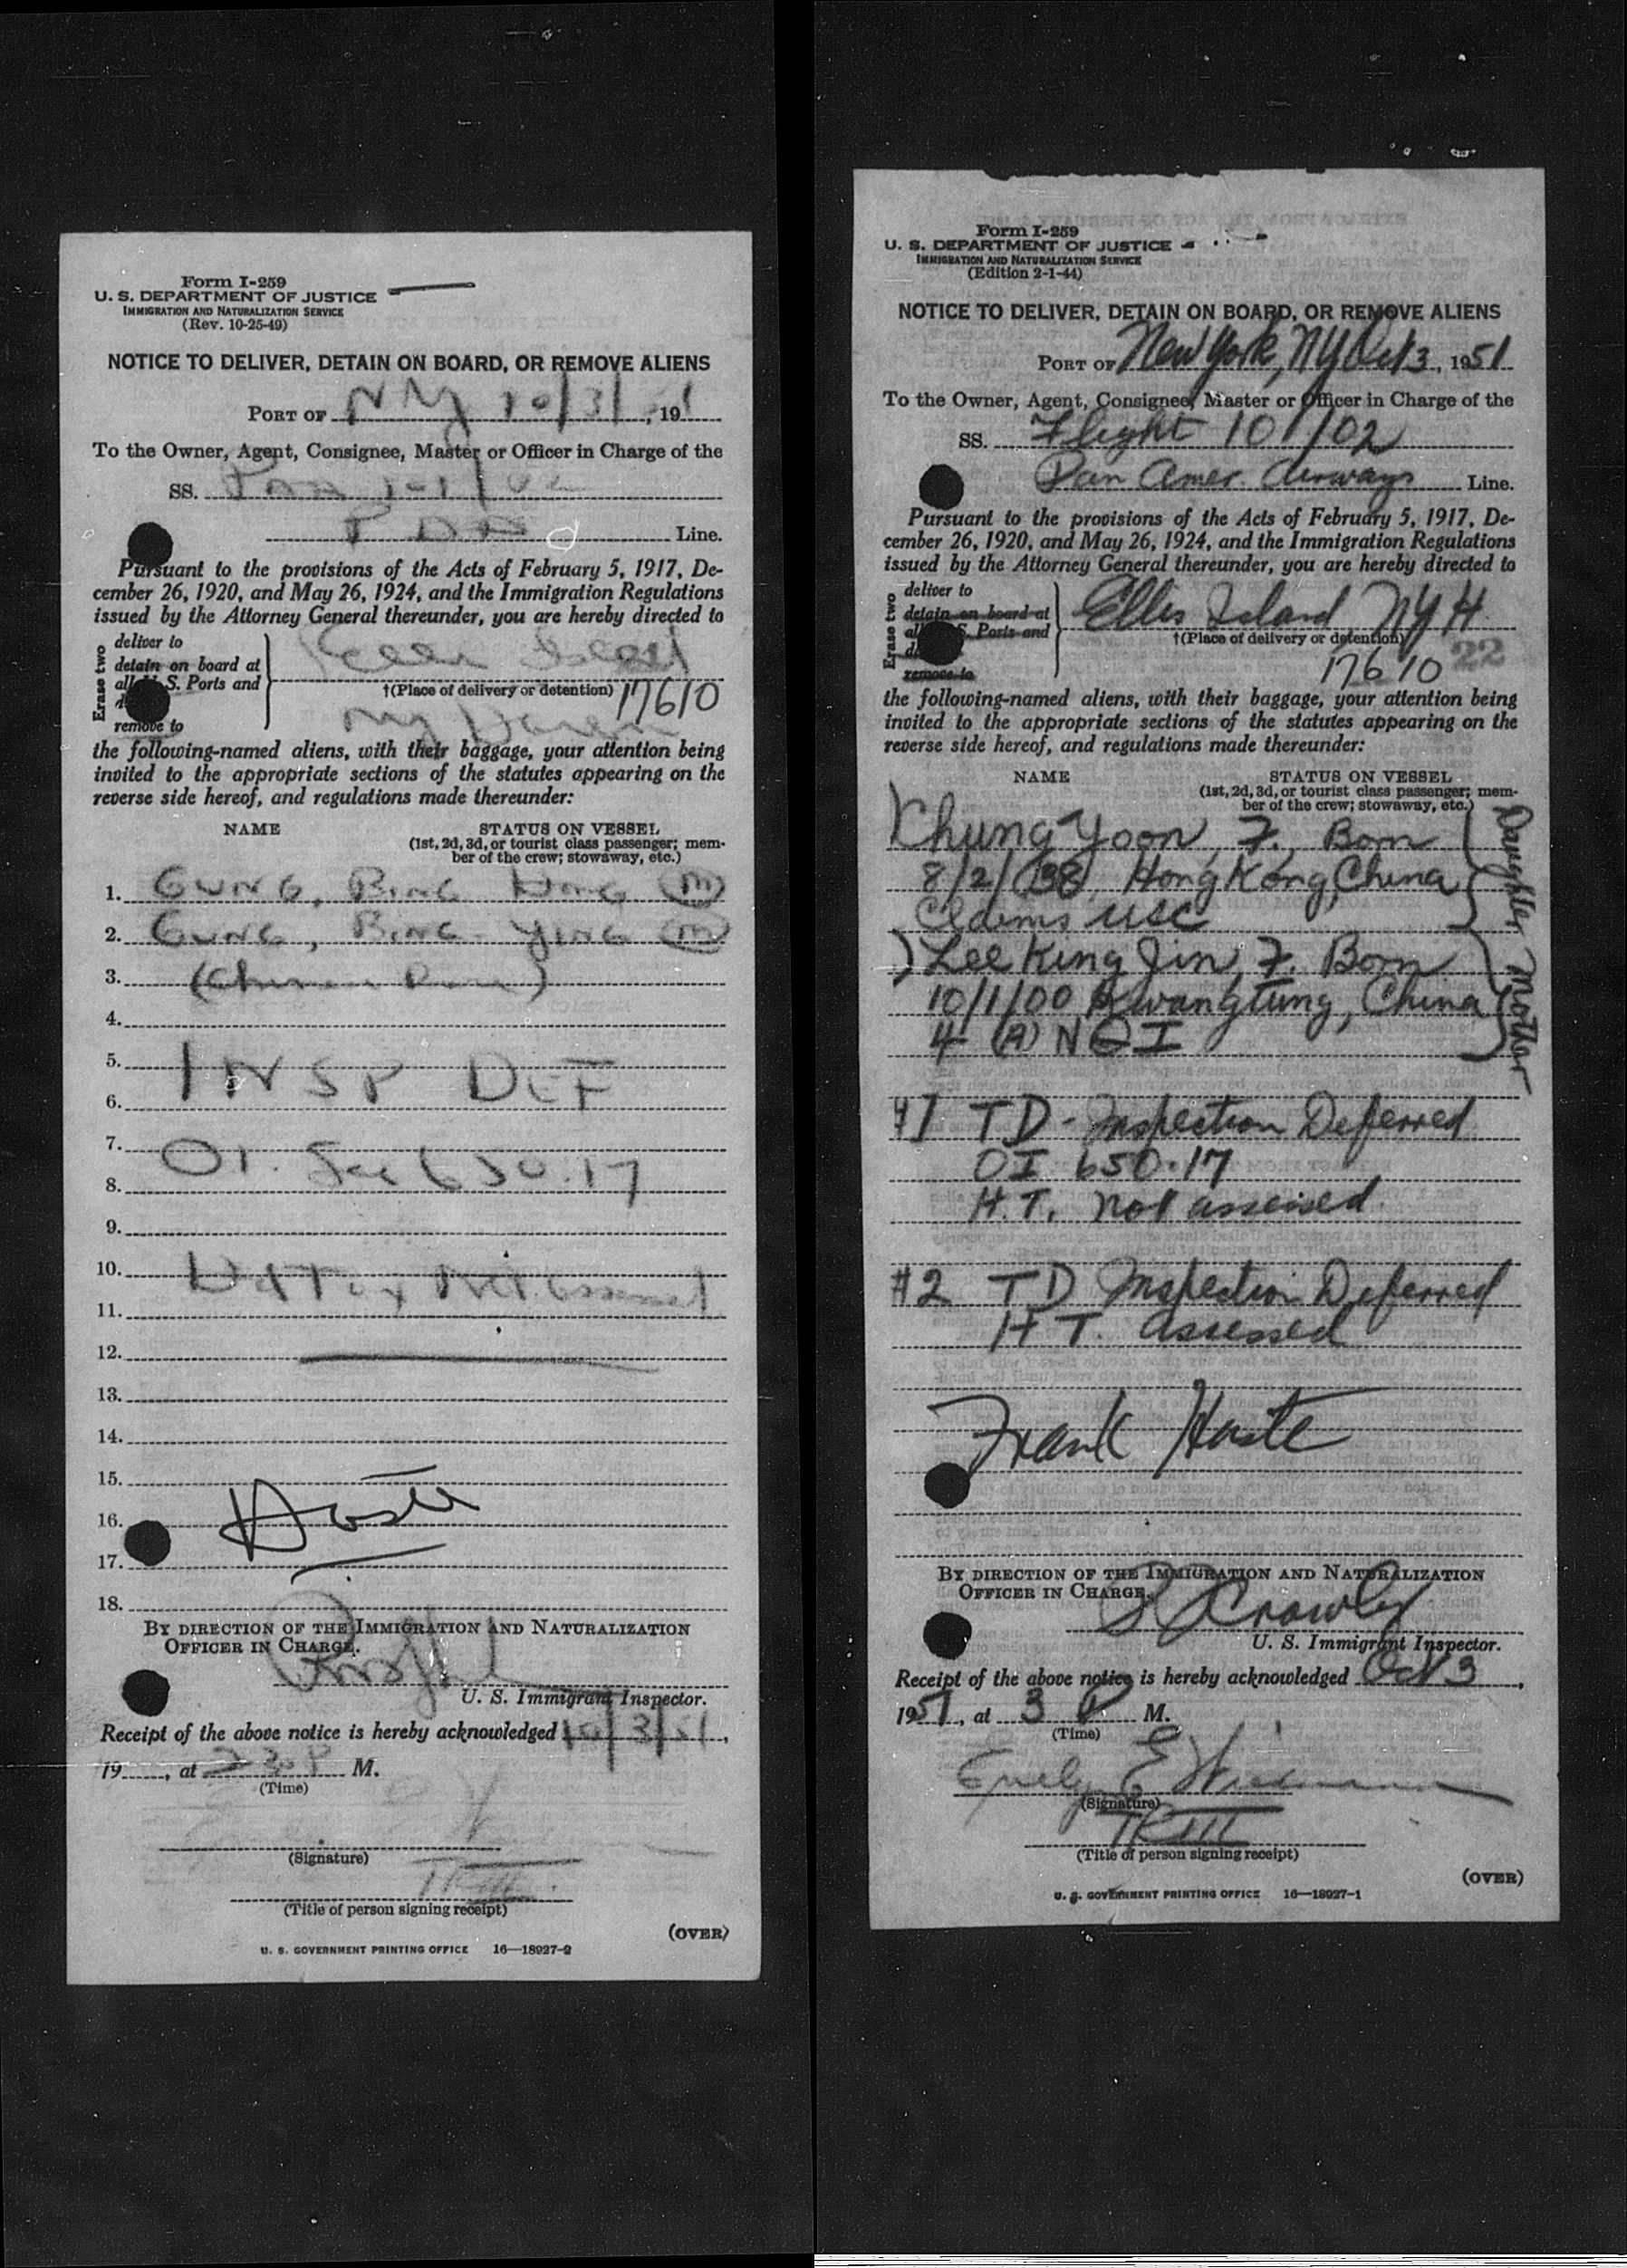 Form I-259
U. S. DEPARTMENT OF JUSTICE
IMMIGRATION AND NATURALIZATION SERVICE
(Rev. 10-25-49)
NOTICE TO DELIVER, DETAIN ON BOARD, OR REMOVE ALIENS
PORT OF NY 10/3/51, 19
To the Owner, Agent, Consignee, Master or Officer in Charge of the
SS.
Line.
Pursuant to the provisions of the Acts of February 5, 1917, De-
cember 26, 1920, and May 26, 1924, and the Immigration Regulations
issued by the Attorney General thereunder, you are hereby directed to
Erase two
deliver to
detain on board at
all U. S. Ports and
remove to
Ellis Island
†(Place of delivery or detention) 17610
NY Harbor
the following-named aliens, with their baggage, your attention being
invited to the appropriate sections of the statutes appearing on the
reverse side hereof, and regulations made thereunder:
NAME STATUS ON VESSEL
(1st, 2d, 3d, or tourist class passenger; mem-
ber of the crew; stowaway, etc.)
1. GUNG, BING HONG (M)
2. GUNG, BING YING (M)
3. (Chinese
4.
5. INSP DEF
6.
7. OI. Sec 650.17
8.
9.
10. Hd Tax Not Assessed
11.
12.
13.
14.
15.
16. Hoste
17.
18.
BY DIRECTION OF THE IMMIGRATION AND NATURALIZATION
OFFICER IN CHARGE.
U. S. Immigrant Inspector.
Receipt of the above notice is hereby acknowledged 10/3/51,
19, at 230P M.
(Time)
(Signature)
TRIII
(Title of person signing receipt)
(OVER)
U. S. GOVERNMENT PRINTING OFFICE 16—18927-2
Form I-259
U. S. DEPARTMENT OF JUSTICE
IMMIGRATION AND NATURALIZATION SERVICE
(Edition 2-1-44)
NOTICE TO DELIVER, DETAIN ON BOARD, OR REMOVE ALIENS
PORT OF New York, NY Oct 3, 1951
To the Owner, Agent, Consignee, Master or Officer in Charge of the
SS. Flight 101/02
Pan Amer. Airways Line.
Pursuant to the provisions of the Acts of February 5, 1917, De-
cember 26, 1920, and May 26, 1924, and the Immigration Regulations
issued by the Attorney General thereunder, you are hereby directed to
Erase two
deliver to
detain on board at
all U. S. Ports and
remove to
Ellis Island NYH.
†(Place of delivery or detention)
17610 22
the following-named aliens, with their baggage, your attention being
invited to the appropriate sections of the statutes appearing on the
reverse side hereof, and regulations made thereunder:
NAME STATUS ON VESSEL
(1st, 2d, 3d, or tourist class passenger; mem-
ber of the crew; stowaway, etc.)
Chung Yoon, F., Born
8/2/38 Hong Kong, China
Claims USC
Daughter
Lee King Jin, F. Born
10/1/00 Kwangtung, China
4 (A) NQI
Mother
#1 TD - Inspection Deferred
OI 650.17
H.T. not assessed
#2 TD Inspection Deferred
HT. assessed
Frank Hoste
BY DIRECTION OF THE IMMIGRATION AND NATURALIZATION
OFFICER IN CHARGE.
S Crowley
U. S. Immigrant Inspector.
Receipt of the above notice is hereby acknowledged Oct 3,
1951, at 3 P M.
(Time)
Emily E Wiedmann
(Signature)
TRIII
(Title of person signing receipt)
(OVER)
U. S. GOVERNMENT PRINTING OFFICE 16—18927-1